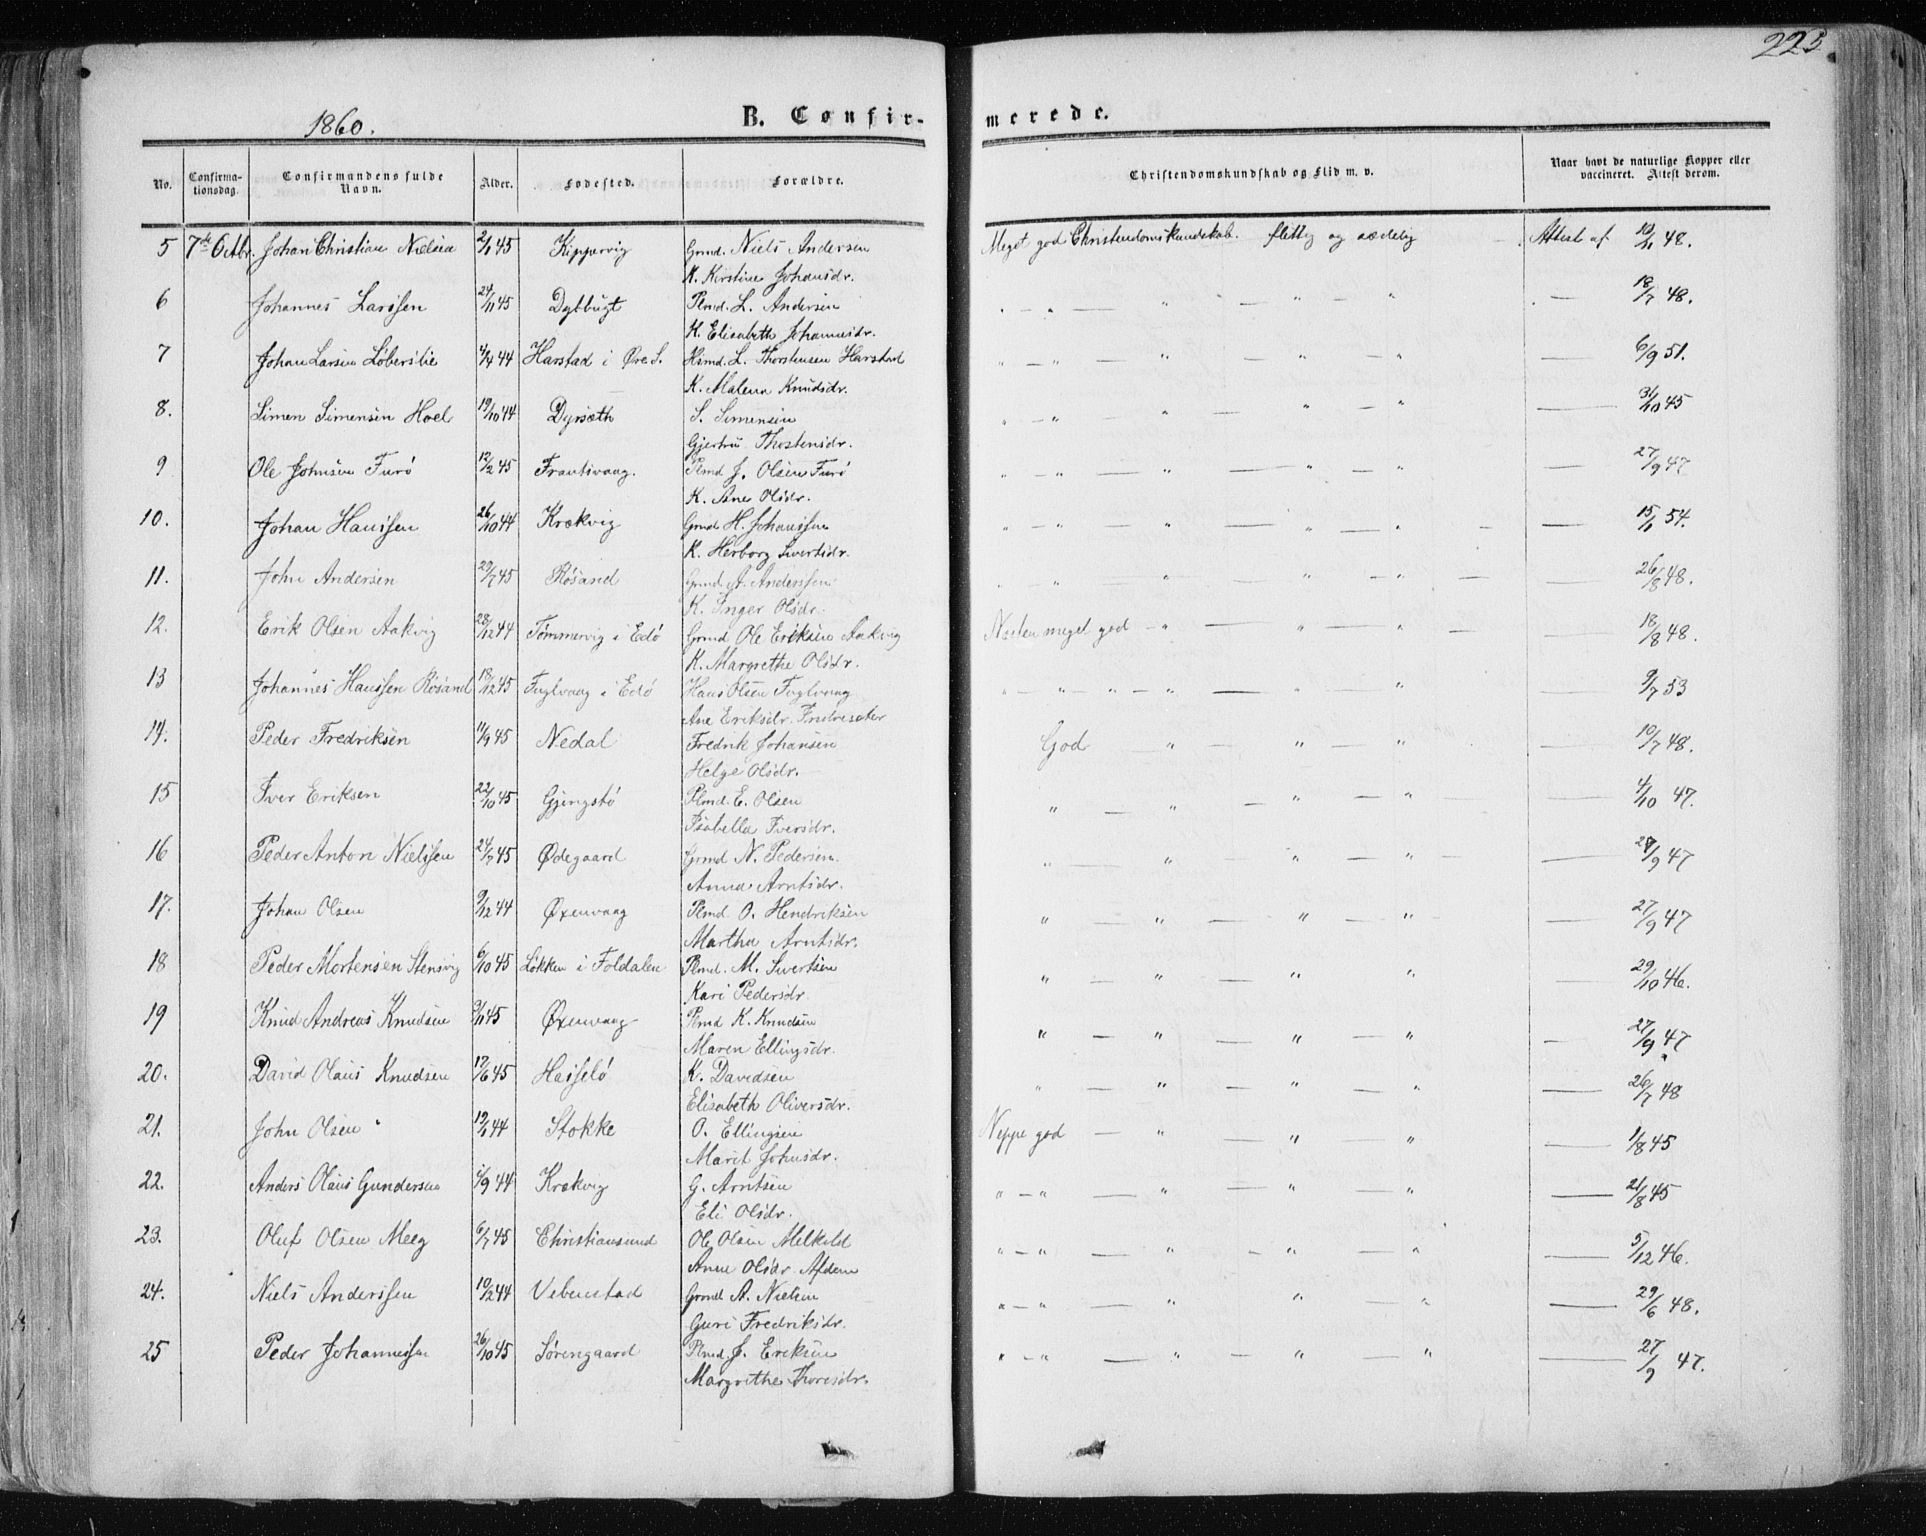 225
1860.
B. Confir-
merede.
No.
Confirma-
tionsdag.
Confirmandens fulde
Navn.
Alder.
Fødested.
Forældre.
Christendomskundskab og Flid m. v.
Naar havt de naturlige Kopper eller
vaccineret. Attest derom.
5 7de Octbr. Johan Christian Nielsen 2/1 45 Kippervig Grmd. Niels Andersen Meget god Christendomskundskab. flittig og sædelig — . Attest af 10/11 48.
K. Kirstine Johansdr.
6 Johannes Larssen 24/11 45 Dybbugt Plmd. L. Andersen " — " — " — " — " — 18/7 48.
K. Elisabeth Johannesdr.
7 Johan Larsen Løberslie 4/4 44 Harstad i Øre S. Hrmd. L. Thorstensen Harstad " — " — " — " — " — 6/9 51.
K. Malena Knudsdr.
8. Simen Simensen Hoel 19/10 44 Dyrsæth S. Simensen " — " — " — " — " — 31/10 45
Gjertru Thostensdr.
9 Ole Johnsen Furø 12/2 45 Frantsvaag. Plmd J. Olsen Furø " — " — " — " — " — 27/9 47
K. Ane Olsdr.
10. Johan Hanssen 26/10 44 Krækvig Grmd H. Johanssen " — " — " — " — " — 15/1 54.
K. Herborg Sivertsdr.
11. John Andersen 29/7 45 Røsand Grmd A. Anderssen " — " — " — " — " — 26/8 48.
K. Inger Olsdr.
12. Erik Olsen Aakvig 28/12 44 Tømmervig i Edø Grmd Ole Eriksen Aakvig Næsten meget god — " — " — " — 18/8 48.
K. Margrethe Olsdr.
13 Johannes Hanssen Røsand 18/12 45 Fuglvaag i Edø Hans Olsen Fuglvaag " — " " — " — " — " — 9/7 53
Ane Eriksdr. Endresæter
14. Peder Fredriksen 11/9 45 Nedal Fredrik Johansen God " — " — " — 10/7 48.
Helge Olsdr.
15 Iver Eriksen 22/10 45 Gjengstø Plmd. E. Olsen " — " — " — " — 4/10 47.
Isabella Iversdr.
16 Peder Anton Nielssen 24/7 45 Ødegaard Grmd N. Pedersen " — " — " — " — 27/9 47
Anna Arntsdr.
17. Johan Olsen 9/12 44 Øxenvaag Plmd. O. Hendriksen " — " — " — " — 27/9 47
Martha Arntsdr.
18 Peder Mortensen Stensvig 6/10 45 Løkken i Foldalen Plmd. M. Sivertsen " — " — " — " — 29/10 46.
Kari Pedersdr.
19 Knud Andreas Knudsen 9/11 45 Øxenvaag Plmd K. Knudsen " — " — " — " — 27/9 47
Maren Ellingsdr.
20. David Olaus Knudsen 17/6 45 Hasselø K. Davidsen " — " — " — " — 26/7 48
Elisabeth Oliversdr.
21. John Olsen " 19/1 44 Stokke O. Ellingsen Neppe god — " — " — " — 1/8 45
Marit Johnsdr.
22. Anders Olaus Gundersen /9 44 Krækvig G. Arntsen " — " — " — " — " — 21/8 45
Eli Olsdr.
23. Oluf Olsen Meeg 6/7 45 Christiansund Ole Olsen Melkild " — " — " — " — " — 5/12 46.
Anne Olsdr.
24. Niels Anderssen 10/2 44 Vebenstad Grmd A. Nielsen " — " — " — " — " — 29/6 48.
Guri Fredriksdr.
25 Peder Johannessen 26/10 45 Sørengaard Plmd. J. Eriksen " — " — " — " — " — 27/9 47.
Margrethe Thoresdr.